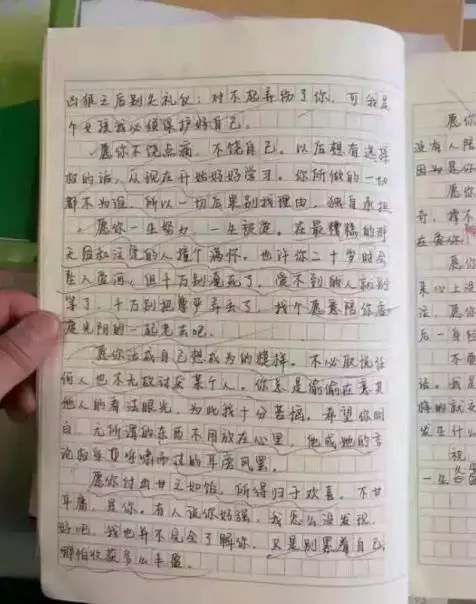 凶狠之后别失礼仪：对不起弄伤了你，可我是
个女孩我必须保护好自己。
愿你不饶点痛，不饶自己。以后想有选择
权的话，从现在开始好好学习。你所做的一切
都不为谁，所以一切后果别找理由，独自承担
愿你一生努力，一生被爱。在最糟糕的那
天后和注定的人撞个满怀。也许你二十岁时会
坠入爱河，但千万别爱死了，爱不到的人就别
等了，千万别把尊严弄丢了，找个愿意陪你虚
度光阴的一起老去吧。
愿你活成自己想成为的模样。不必取悦任
何人也不允许讨好某个人。你总是偷偷在意其
他人的看法眼光，为此我十分苦恼。希望你明
白，无所谓的东西不用放在心里，他或她的言
论
呼啸而过的耳旁风罢。
愿你付出甘之如饴，所得归于欢喜。不甘
平庸，是你。有人说你好强，我怎么没发现，
好吧，我也并不完全了解你，只是别累着自己
哪怕收获多么丰盈。
愿你
没有人陪
因为是你
愿你
奇，撑不
在爱你
愿你
某心上没
注，愿你
后一身
不要
话。我
悔的就
发生什么
祝
一生